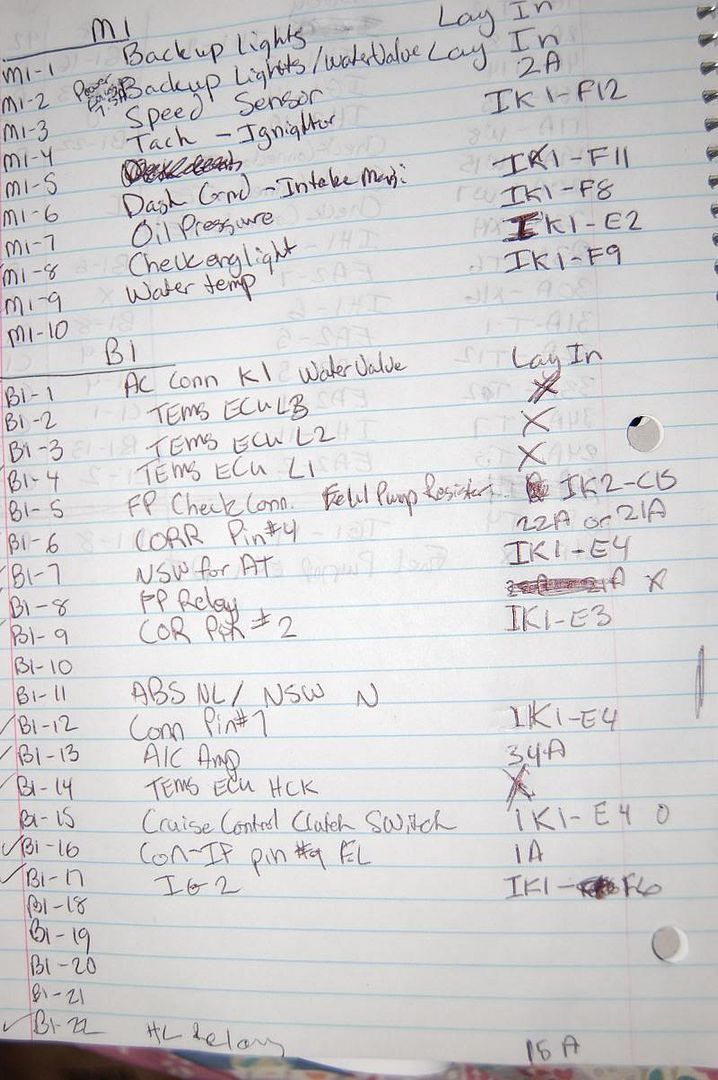 M1
M1-1 Backup Lights Lay In
M1-2 Backup Lights/waterValve Lay In
M1-3 Speed Sensor 2A
M1-4 Tach - Ignightor IK1-F12
M1-5
M1-6 Dash Grnd - Intake Mani: IK1-F11
M1-7 Oil Pressure IK1-F8
M1-8 Check eng light IK1-E2
M1-9 Water temp IK1-F9
M1-10
B1
B1-1 AC Conn K1 Water Valve Lay In
B1-2 TEMS ECU L3 X
B1-3 TEMS ECU L2 X
B1-4 TEMS ECU L1 X
B1-5 FP Check Conn. Pump Resistart IK2-C15
B1-6 CORR Pin#4 22A or 21A
B1-7 NSW for AT IK1-E4
B1-8 FP Relay X
B1-9 COR Pin #2 IK1-E3
B1-10
B1-11 ABS NL/ NSW N
B1-12 Conn Pin#7 IK1-E4
B1-13 A/C Amp 34A
B1-14 TEMS ECU HCK X
B1-15 Cruise Control Clutch Switch IK1-E4 0
B1-16 Con-IP pin #9 EL 1A
B1-17 IG2 IK1-F6
B1-18
B1-19
B1-20
B1-21
B1-22 HL Relay 15A